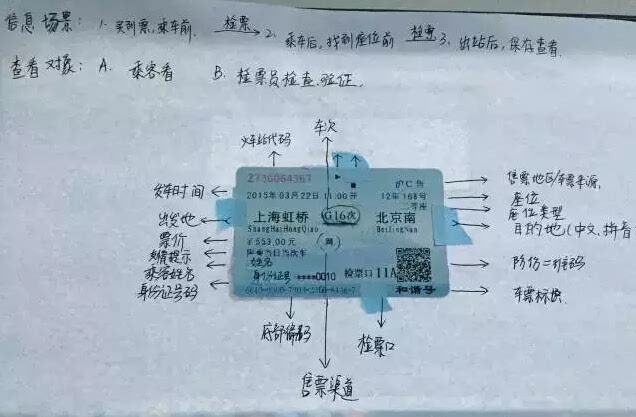 信息场景: 1. 买到票,乘车前. 检票→ 2. 乘车后,找到座位前 检票→ 3. 出站后,保存查看.
查看对象: A. 乘客看 B. 检票员检查.验证.
车次
火车站代码
Z736064367
沪C售
售票地区/车票来源.
发车时间
2015年03月22日11:00开
12车16B号
座位
二等座
座位类型
出发地
上海虹桥
G16次
北京南
目的地(中文、拼音
ShangHaiHongQiao
BeiJingNan
票价
¥553.00元
网
限乘当日当次车
乘客姓名
姓名
防伪二维码
身份证号码
身份证号 ****0010
检票口 11A
和谐号
车票标识.
检票口
售票渠道